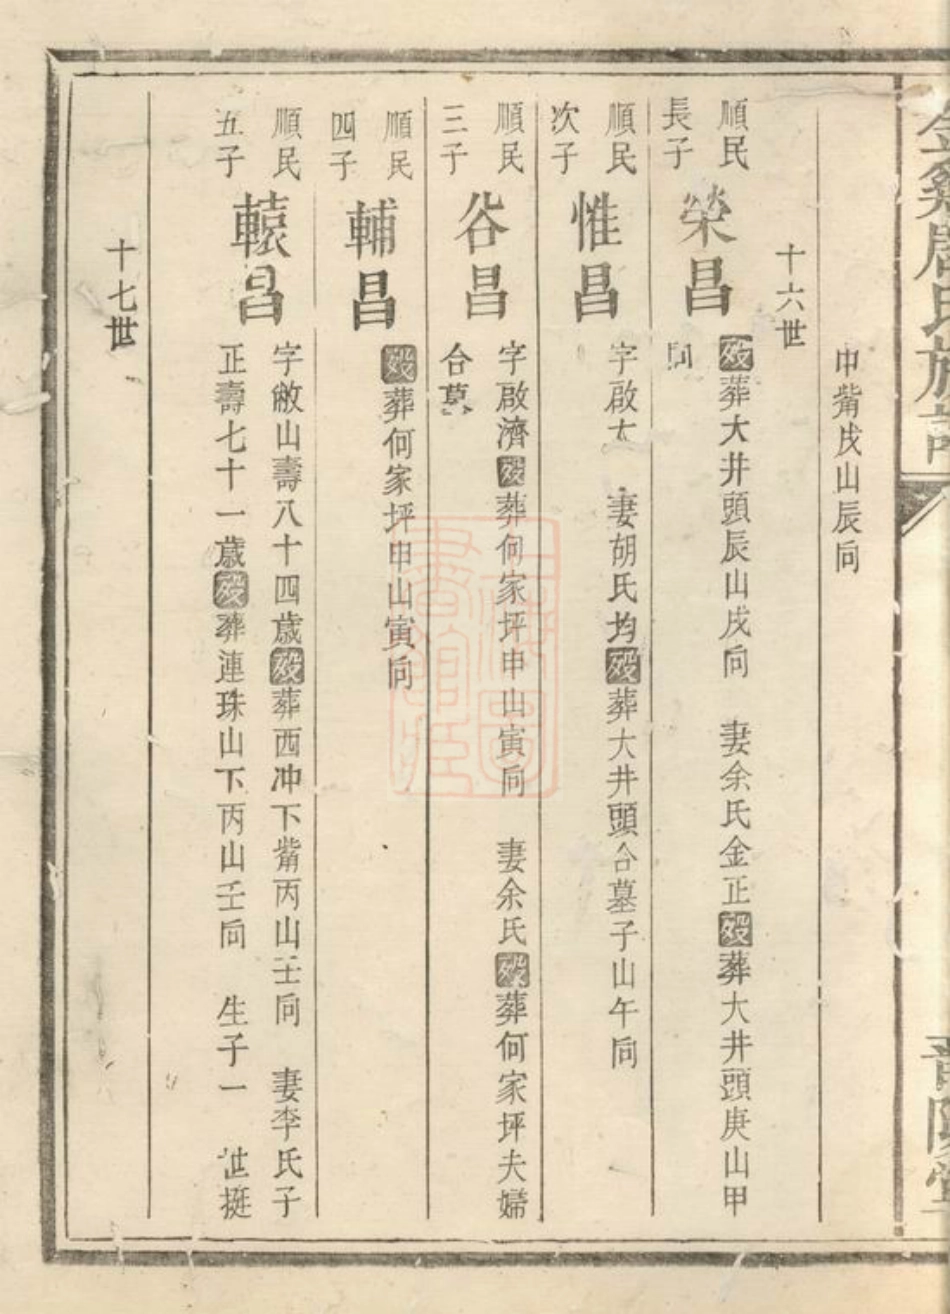 中嘴戌山辰向
十六世
順民
長子
榮昌
歿葬大井頭辰山戌向 妻余氏金正歿葬大井頭庚山甲
向
順民
次子
惟昌
字啟太 妻胡氏均歿葬大井頭合墓子山午向
順民
三子
谷昌
字啟濟歿葬何家坪申山寅向 妻余氏歿葬何家坪夫婦
合墓
順民
四子
輔昌
歿葬何家坪申山寅向
順民
五子
轅昌
字敝山壽八十四歲歿葬西冲下嘴丙山壬向 妻李氏子
正壽七十一歲歿葬連珠山下丙山壬向 生子一 世挺
十七世